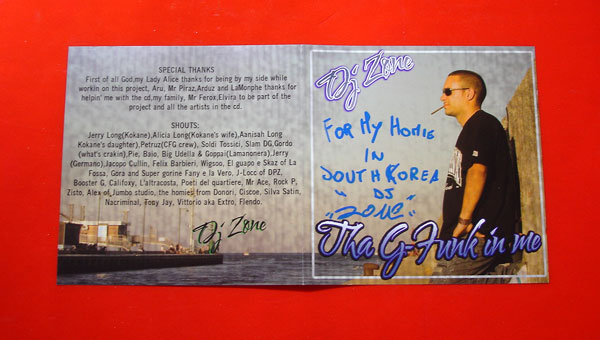 SPECIAL THANKS
First of all God,my Lady Alice thanks for being by my side while
workin on this project, Aru, Mr Piraz,Arduz and LaMonphe thanks for
helpin' me with the cd,my family, Mr Ferox,Elvira to be part of the
project and all the artists in the cd.
SHOUTS:
Jerry Long(Kokane),Alicia Long(Kokane's wife),Aanisah Long
Kokane's daughter),Petruz(CFG crew), Soldi Tossici, Slam DG,Gordo
(what's crakin),Pie, Baio, Big Udella & Goppai(Lamanonera),Jerry
(Germano)Jacopo Cullin, Felix Barbieri Wigsoo, El guapo e Skaz of La
Fossa, Gora and Super gorine Fany e la Vero, J-Locc of DPZ,
Booster G, Califoxy, L'altracosta, Poeti del quartiere, Mr Ace, Rock P,
Zisto, Alex of Jumbo studio, the homies from Donori, Ciscoe, Silva Satin,
Nacriminal, Tony Jay, Vittorio aka Extro, Flendo.
Dj Zone
Dj Zone
FOR MY HOMIE
IN
SOUTH KOREA
" DJ
ZONE"
Tha G-Funk in me